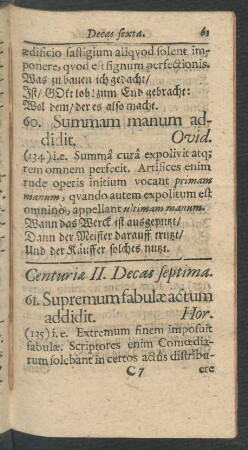 Decas sexta. 61
ædificio fastigium aliqvod solent im-
ponere, qvod est signum perfectionis.
Was zu bauen ich gedacht/
Ist/ GOtt lob! zum End gebracht:
Wol dem/ der es also macht.
60. Summam manum ad-
didit. Ovid.
(134) i.e. Summâ curâ expolivit atq;
rem omnem perfecit. Artifices enim
rude operis initium vocant primam
manum, qvando autem expolitum est
omnino, appellant ultimam manum.
Wann das Werck ist ausgeputzt/
Dann der Meister darauff trutzt/
Und der Käuffer solches nutzt.
Centuriæ II. Decas septima.
61. Supremum fabulæ actum
addidit. Hor.
(135) i.e. Extremum finem imposuit
fabulæ. Scriptores enim Comœdia-
rum solebant in certos actûs distribu-
C 7 ere